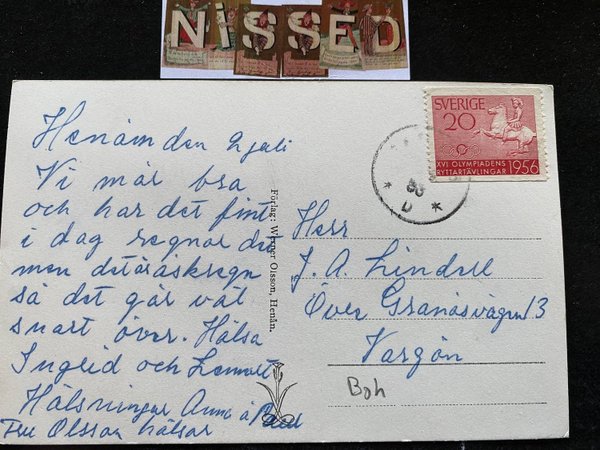 NiSSED
Henån den 2 juli
Vi mår bra
och har det fint
i dag regnar det
men det är åskregn
så det går väl
snart över. Hälsa
Ingrid och Lennart
Hälsningar Anna å
Fru Olsson hälsar
Förlag: Werner Olsson, Henån.
SVERIGE
20
XVI OLYMPIADENS
RYTTARTÄVLINGAR 1956
56
* D *
Herr
J. A. Lindell
Över Granäsvägen 13
Vargön
Boh